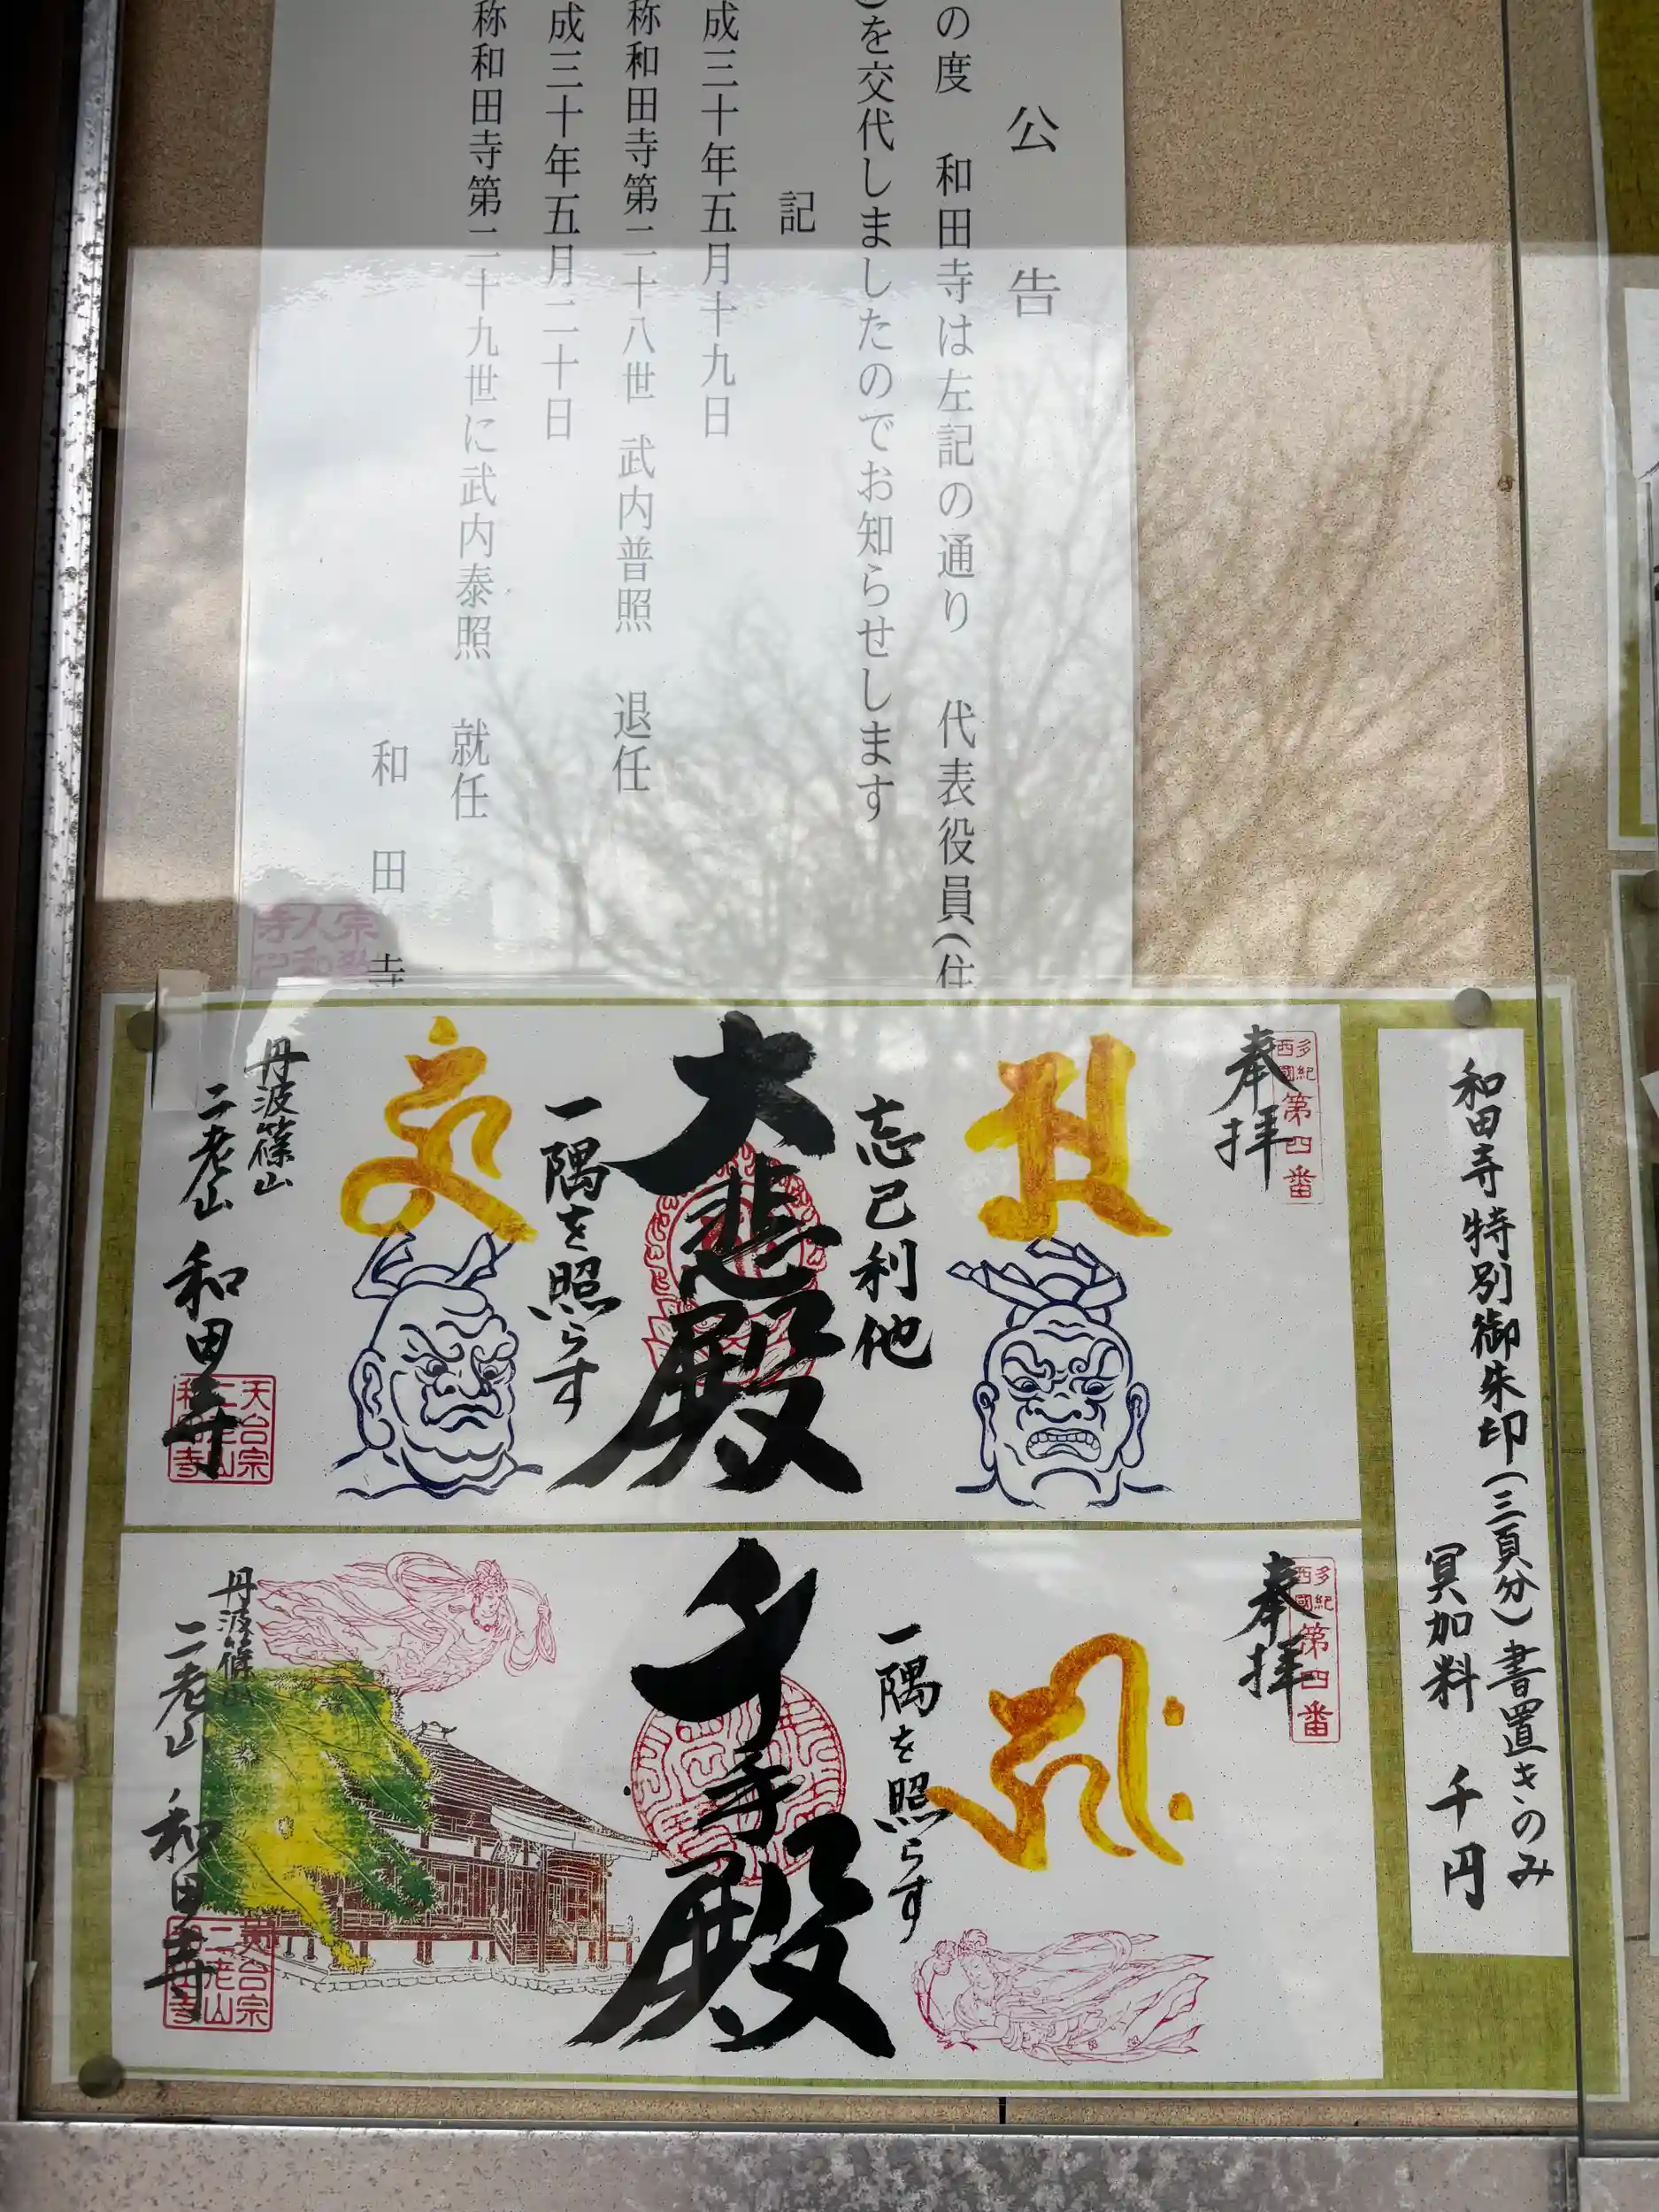 公告
の度 和田寺は左記の通り 代表役員(住
)を交代しましたのでお知らせします
記
成三十年五月十九日
称和田寺第二十八世 武内普照 退任
成三十年五月二十日
称和田寺第二十九世に武内泰照 就任
和田寺
和田寺特別御朱印(三頁分)書置きのみ
冥加料 千円
多紀
西國
第四番
奉拝
忘己利他
大悲殿
一隅を照らす
丹波篠山
二老山 和田寺
天台宗
二老山
和田寺
多紀
西國
第四番
奉拝
一隅を照らす
千手殿
丹波篠山
二老山 和田寺
天台宗
二老山
和田寺